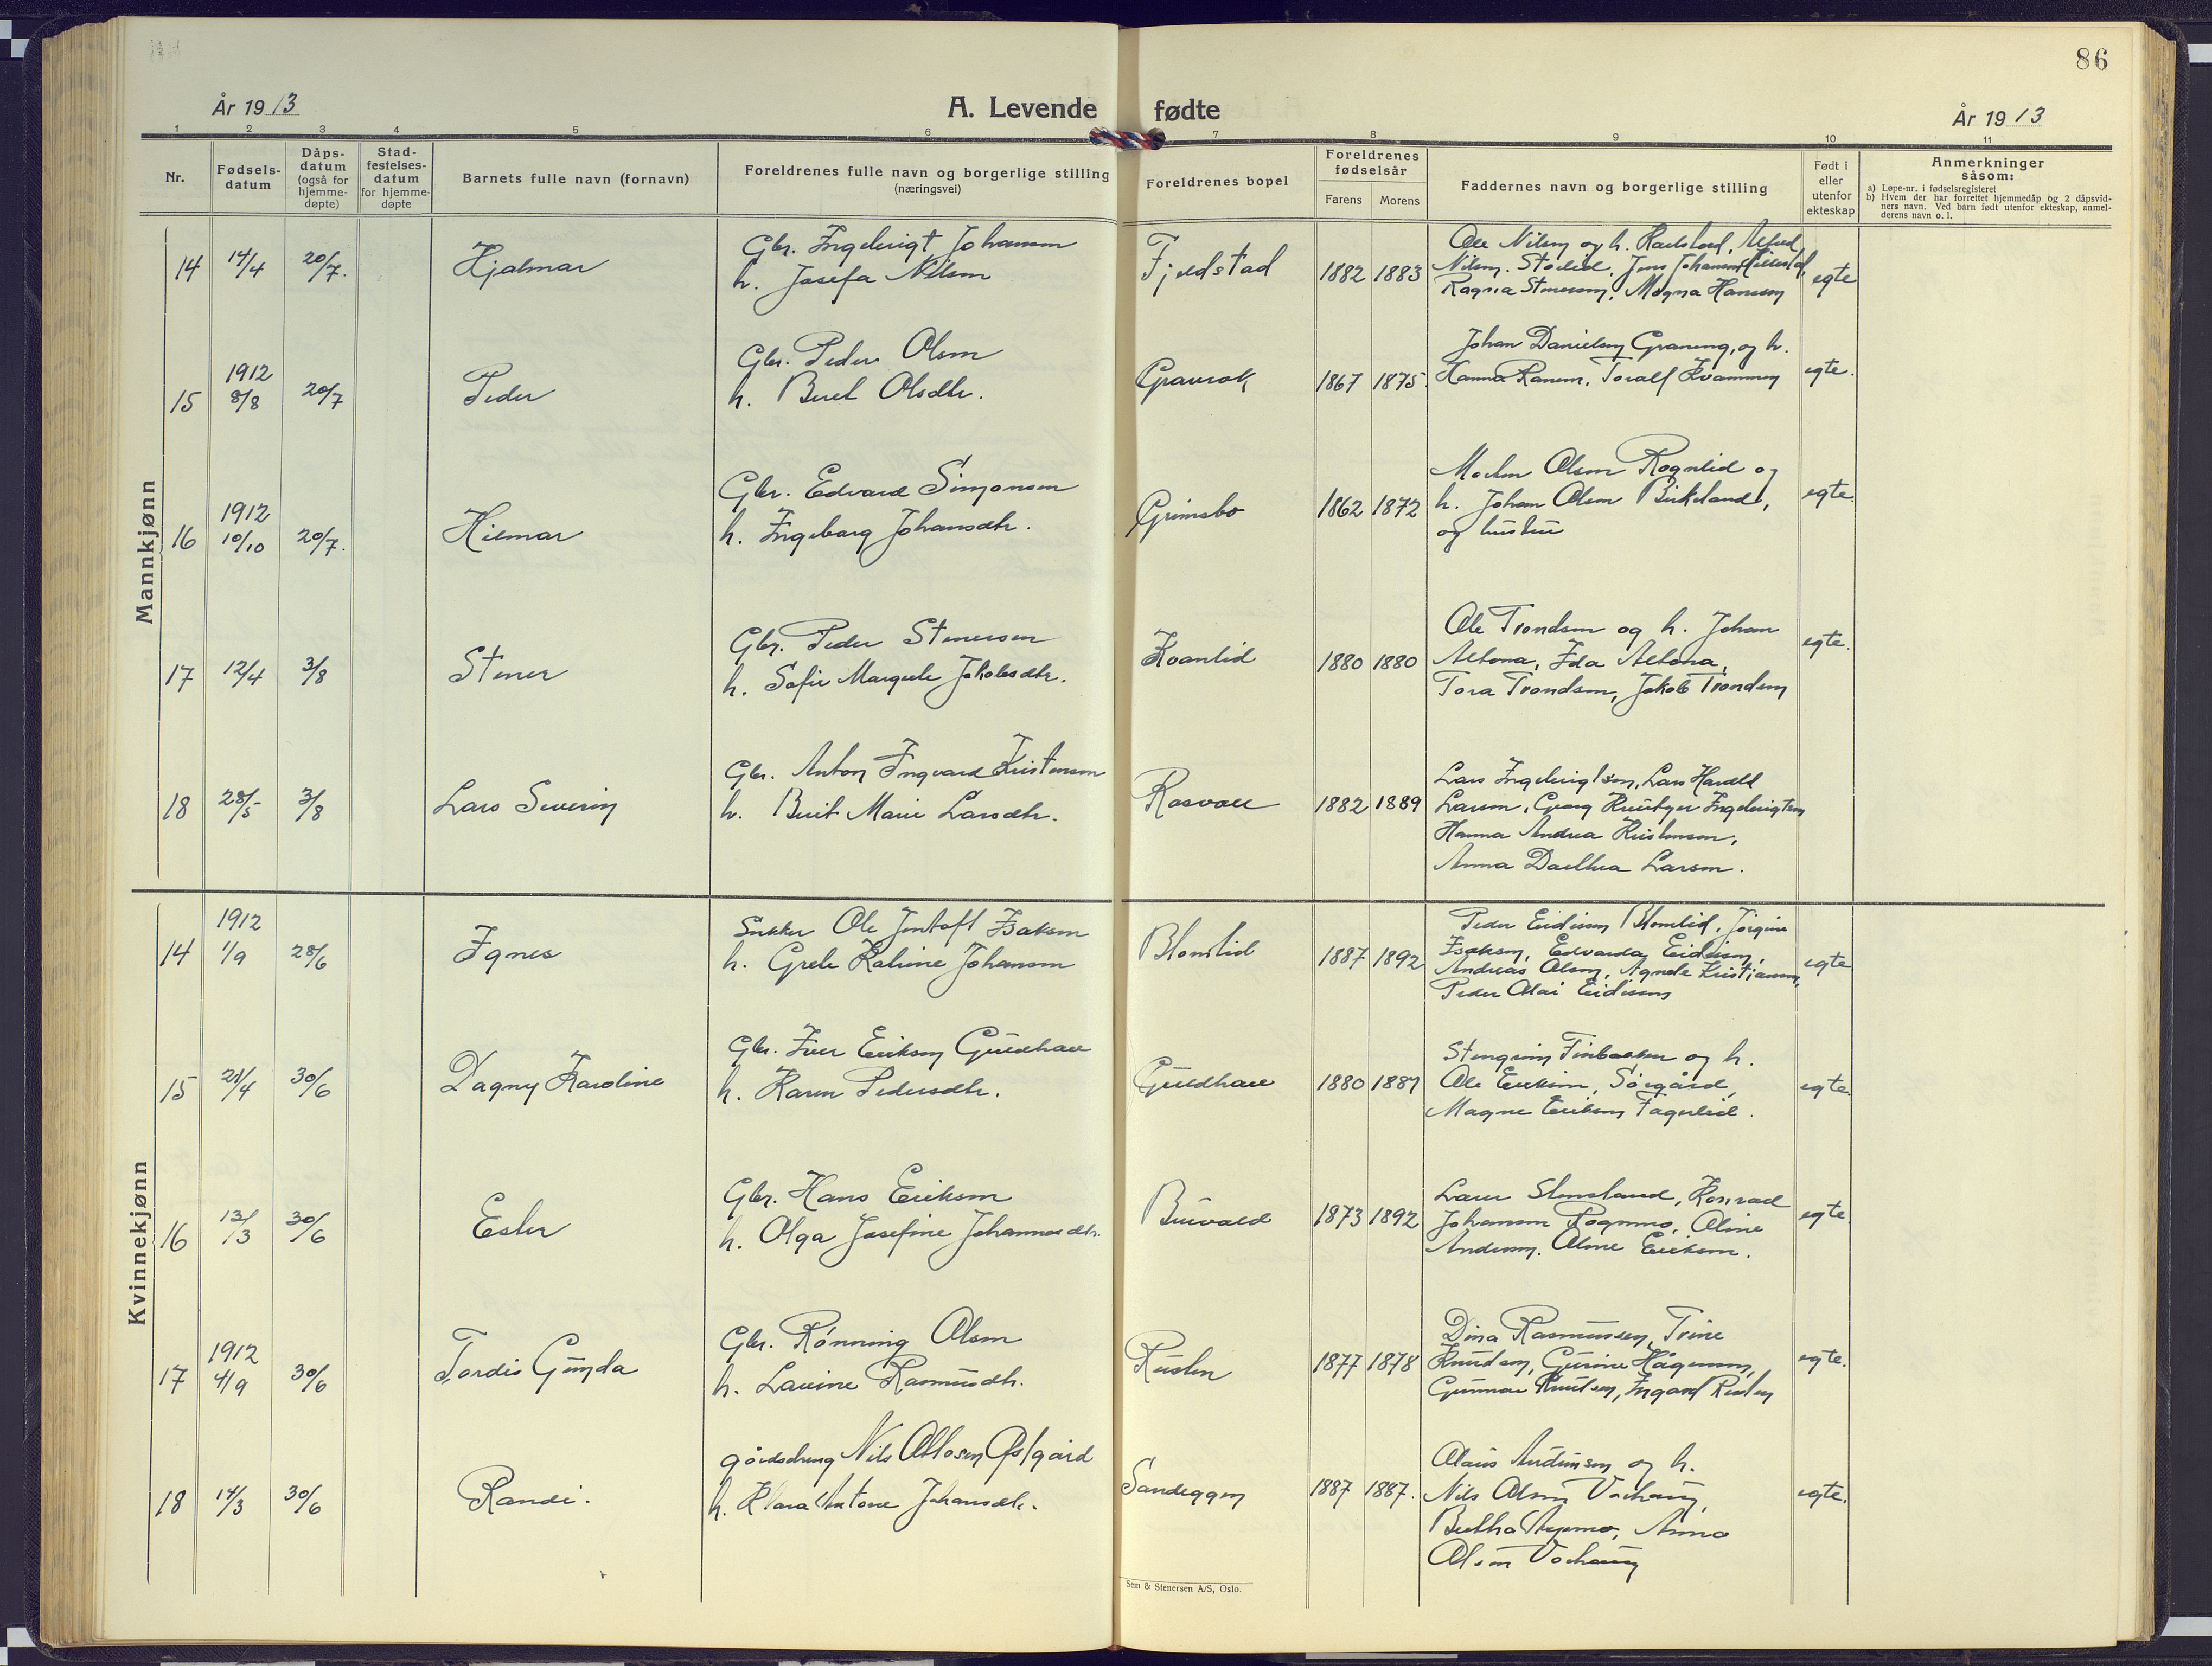 86
År 1913
A. Levende fødte
År 1913
1 2 3 4 5 6 7 8 9 10 11
Nr.
Fødsels-
datum
Dåps-
datum
(også for
hjemme-
døpte)
Stad-
festelses-
datum
for hjemme-
døpte
Barnets fulle navn (fornavn)
Foreldrenes fulle navn og borgerlige stilling
(næringsvei)
Foreldrenes bopel
Foreldrenes
fødselsår
Farens Morens
Faddernes navn og borgerlige stilling
Født i
eller
utenfor
ekteskap
Anmerkninger
såsom:
a) Løpe-nr. i fødselsregisteret
b) Hvem der har forrettet hjemmedåp og 2 dåpsvid-
ners navn. Ved barn født utenfor ekteskap, anmel-
derens navn o. l.
Mannkjønn
14 14/4 20/7. Hjalmar
Gbr. Ingebrigt Johansen
h. Josefa Nilsen
Fjeldstad 1882 1883
Ole Nilsen og h. Alfred
Nilsen. Jens Johansen
Ragna Stenersen, Magna Hansen
egte
15 1912 8/8 20/7 Peder
Gbr. Peder Olsen
h. Beret Olsdtr.
1867 1875
Johan Danielsen Graneng, og h.
Hanna Ranem. Toralf Kvammen
egte.
16 1912 10/10 20/7. Hilmar
Gbr. Edvard Simonsen
h. Ingeborg Johansdtr.
Grimsbo 1862 1872
Morten Olsen Rognlid og
h. Johan Olsen Birkeland,
og hustru
egte.
17 12/4 3/8 Stener
Gbr. Peder Stenersen
h. Sofie Margrete Jakobsdtr.
Kvanlid 1880 1880
Ole Trondsen og h. Johan
Altona, Ida Altona,
Tora Trondsen, Jakob Trondsen
egte.
18 28/5 3/8 Lars Severin
Gbr. Anton Ingvard Kristensen
h. Berit Marie Larsdtr.
Rosvoll 1882 1889
Lars Ingebrigtsen, Lars Harald
Larsen, Georg Ingebrigtsen
Hanna Andrea Kristensen,
Anna Dorthea Larsen.
Kvinnekjønn
14 1912 1/9 28/6 Ignes
Ole Jentoft Isaksen
h. Grete Katrine Johansen
Blomlid 1887 1892
Peder Eidissen Blomlid, Jörgine
Isaksen, Edvarda Eidissen,
Andreas Olsen, Agnete Kristiansen,
Peder Olai Eidissen
egte
15 21/4 30/6 Dagny Karoline
Gbr. Iver Eriksen Guldhau
h. Karen Pedersdtr.
Guldhau 1880 1887
og h.
Ole Eriksen, Sörgård,
Magne Eriksen Fagerlid.
egte.
16 13/3 30/6 Ester
Gbr. Hans Eriksen
h. Olga Josefine Johannesdtr.
Buvold 1873 1892
Konrad
Johansen Rognmo, Oline
Andersen. Oline Eriksen.
egte
17 1912 4/9 30/6 Tordis Gunda
Gbr. Rønning Olsen
h. Lavine Rasmusdtr.
1877 1878
Dina Rasmussen, Trine
Knudsen, Gurine Hågensen,
Gunnar Knudsen,
egte.
18 14/3 30/6 Randi.
gårdsdreng Nils Ottosen Østgård
h. Klara Antone Johansdtr.
Sandeggen 1887 1887.
Olaus Andersen og h.
Nils Olsen
Bertha Anna
Olsen
egte.
Sem & Stenersen A/S, Oslo.